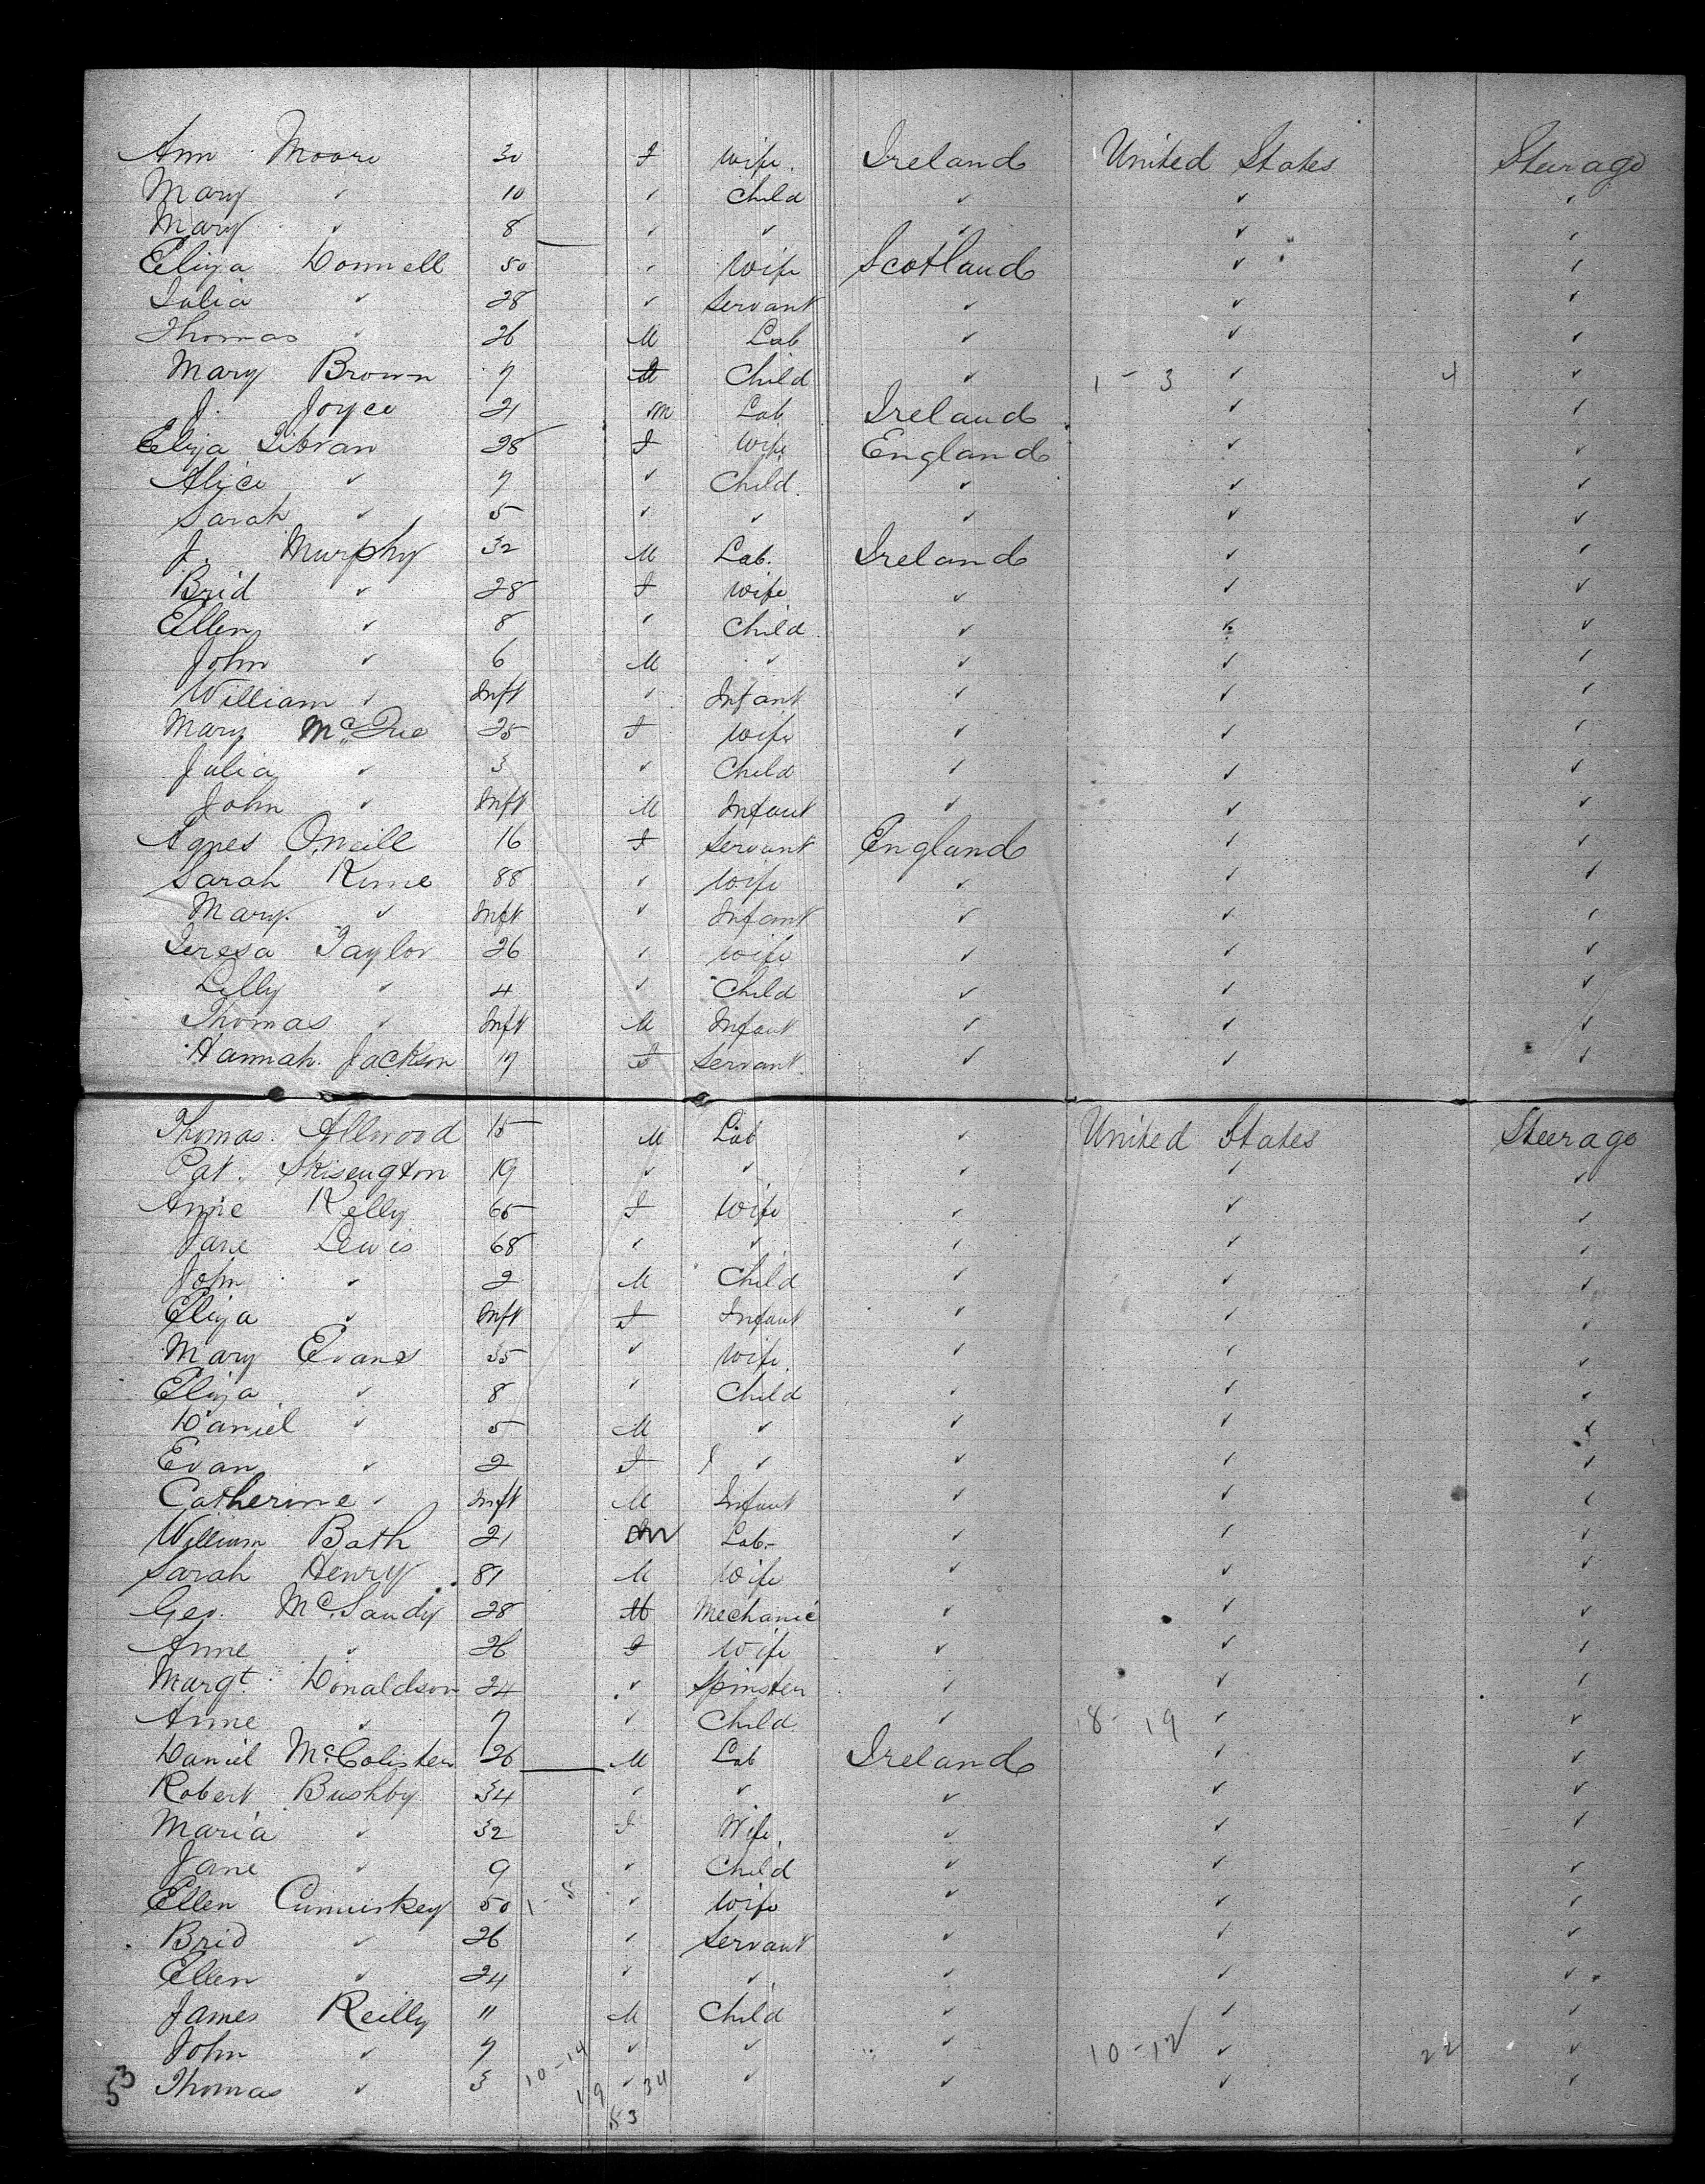 Ann Moore 30 F Wife Ireland United States Steerage
Mary " 10 " Child " " "
Mary " 8 " " " " "
Eliza Donnell 50 " Wife Scotland " "
Julia " 28 " Servant " " "
Thomas " 26 M Lab " " "
Mary Brown 7 F Child " 1 - 3 " 4 "
J. Joyce 21 M Lab Ireland " "
Eliza 28 F Wife England " "
Alice " 7 " Child " " "
Sarah " 5 " " " " "
J. Murphy 32 M Lab. Ireland " "
Brid " 28 F Wife " " "
Ellen " 8 " Child " " "
John " 6 M " " " "
William " Inft " Infant " " "
Mary McQue 25 F Wife " " "
Julia " 3 " Child " " "
John " Inft M Infant " " "
Agnes Oneill 16 F Servant England " "
Sarah 88 " Wife " " "
Mary " Inft " Infant " " "
Teresa Taylor 26 " Wife " " "
Lilly " 4 " Child " " "
Thomas " Inft M Infant " " "
Hannah Jackson 17 F Servant " " "
Thomas Allwood 15 M Lab " United States Steerage
Pat. Skisengton 19 " " " " "
Annie Kelly 65 F Wife " " "
Jane Lewis 68 " " " " "
John " 2 M Child " " "
Eliza " Inft F Infant " " "
Mary Evans 35 " Wife " " "
Eliza " 8 " Child " " "
Daniel " 5 M " " " "
Evan " 2 F " " " "
Catherine " Inft M Infant " " "
William Bath 21 M Lab. " " "
Sarah Henry 81 M Wife " " "
Geo. 28 M Mechanic " " "
Anne " 26 F Wife " " "
Margt. Donaldson 24 " Spinster " " "
Anne " 7 " Child " 18 - 19 " "
Daniel McColister 26 M Lab Ireland " "
Robert Bushby 34 " " " " "
Maria " 32 F Wife " " "
Jane " 9 " Child " " "
Ellen Cumiskey 50 1 - 8 " Wife " " "
Brid " 26 " Servant " " "
Ellen " 24 " " " " "
James Reilly 11 M Child " " "
John " 7 " " " 10 - 12 " 22 "
53 Thomas " 3 10 - 14 19 " 34 " " " "
53